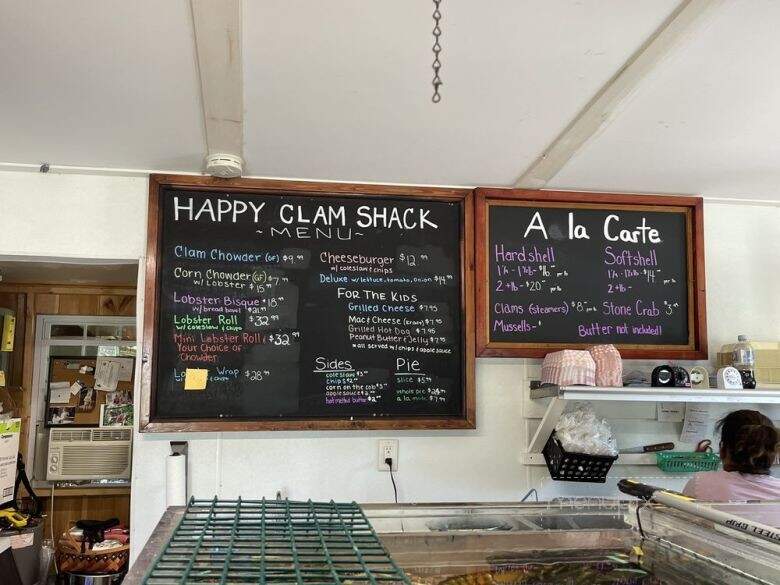 HAPPY CLAM SHACK
~ MENU ~
Clam Chowder (GF) $9.99
Corn Chowder (GF) $7.99
w/ Lobster $15.99
Lobster Bisque $18.99
w/ bread bowl $21.99
Lobster Roll $32.99
w/ coleslaw & chips
Mini Lobster Roll & $32.99
Your Choice of
Chowder
Wrap $28.99
& chips
Cheeseburger $12.99
w/ coleslaw & chips
Deluxe w/ lettuce, tomato, onion $14.99
FOR THE KIDS
Grilled Cheese $7.95
Mac & Cheese (Kraft) $7.95
Grilled Hot Dog $7.95
Peanut Butter & Jelly $7.95
* all served w/ chips & applesauce
Sides
coleslaw
chips
corn on the cob
applesauce
hot melted butter
Pie
slice $5.99
whole pie
a la mode $7.99
A la Carte
Hardshell
2 + lb - $20.
per lb
Softshell
$14.
per lb
2 + lb -
Clams (steamers) $8. per lb
Mussels -
Stone Crab $3.
Butter not included!
STEEL GRIP